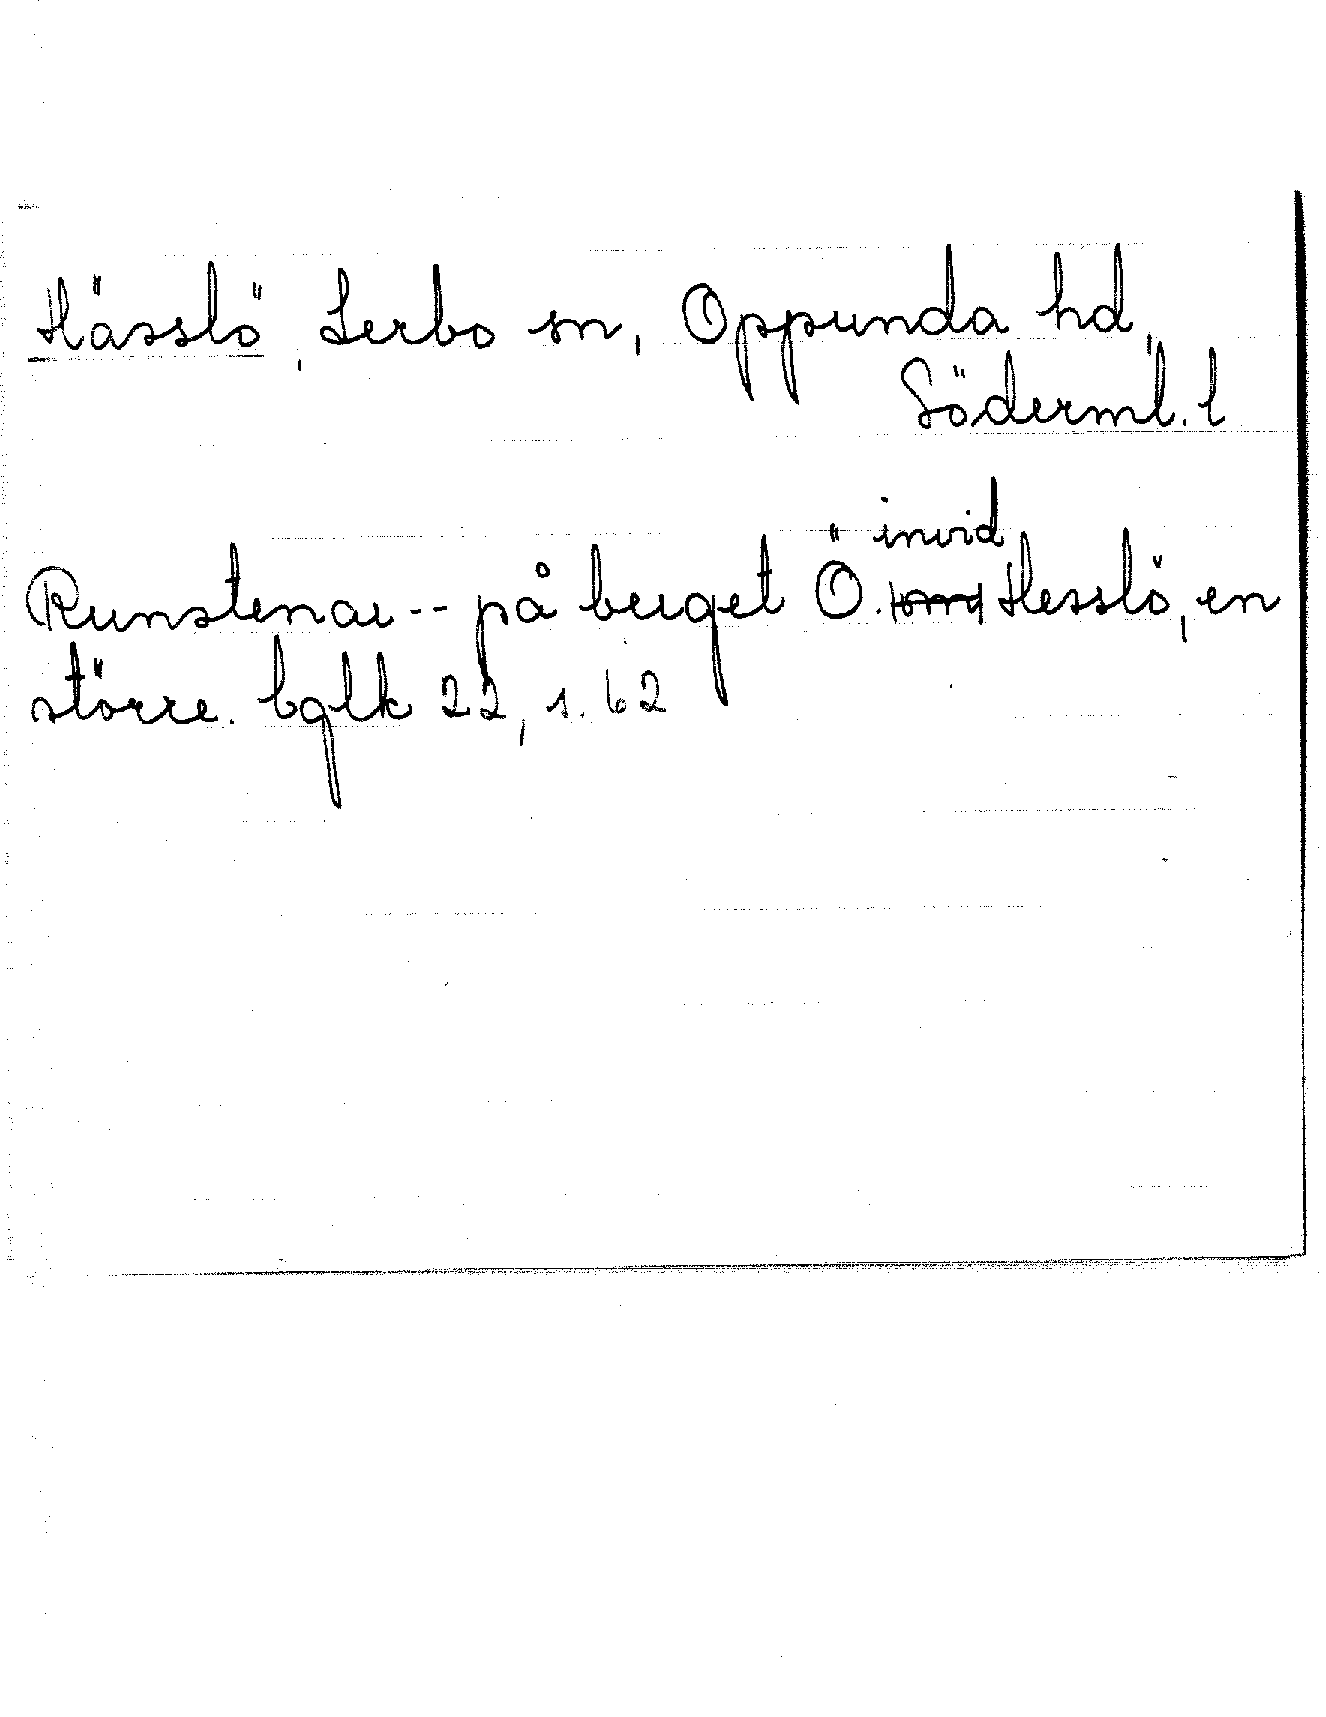 Hässlö, Lerbo sn, Oppunda hd,
Söderml. l
invid
Runstenar -- på berget Ö. Hesslö, en
större. bglk 22, s. 62